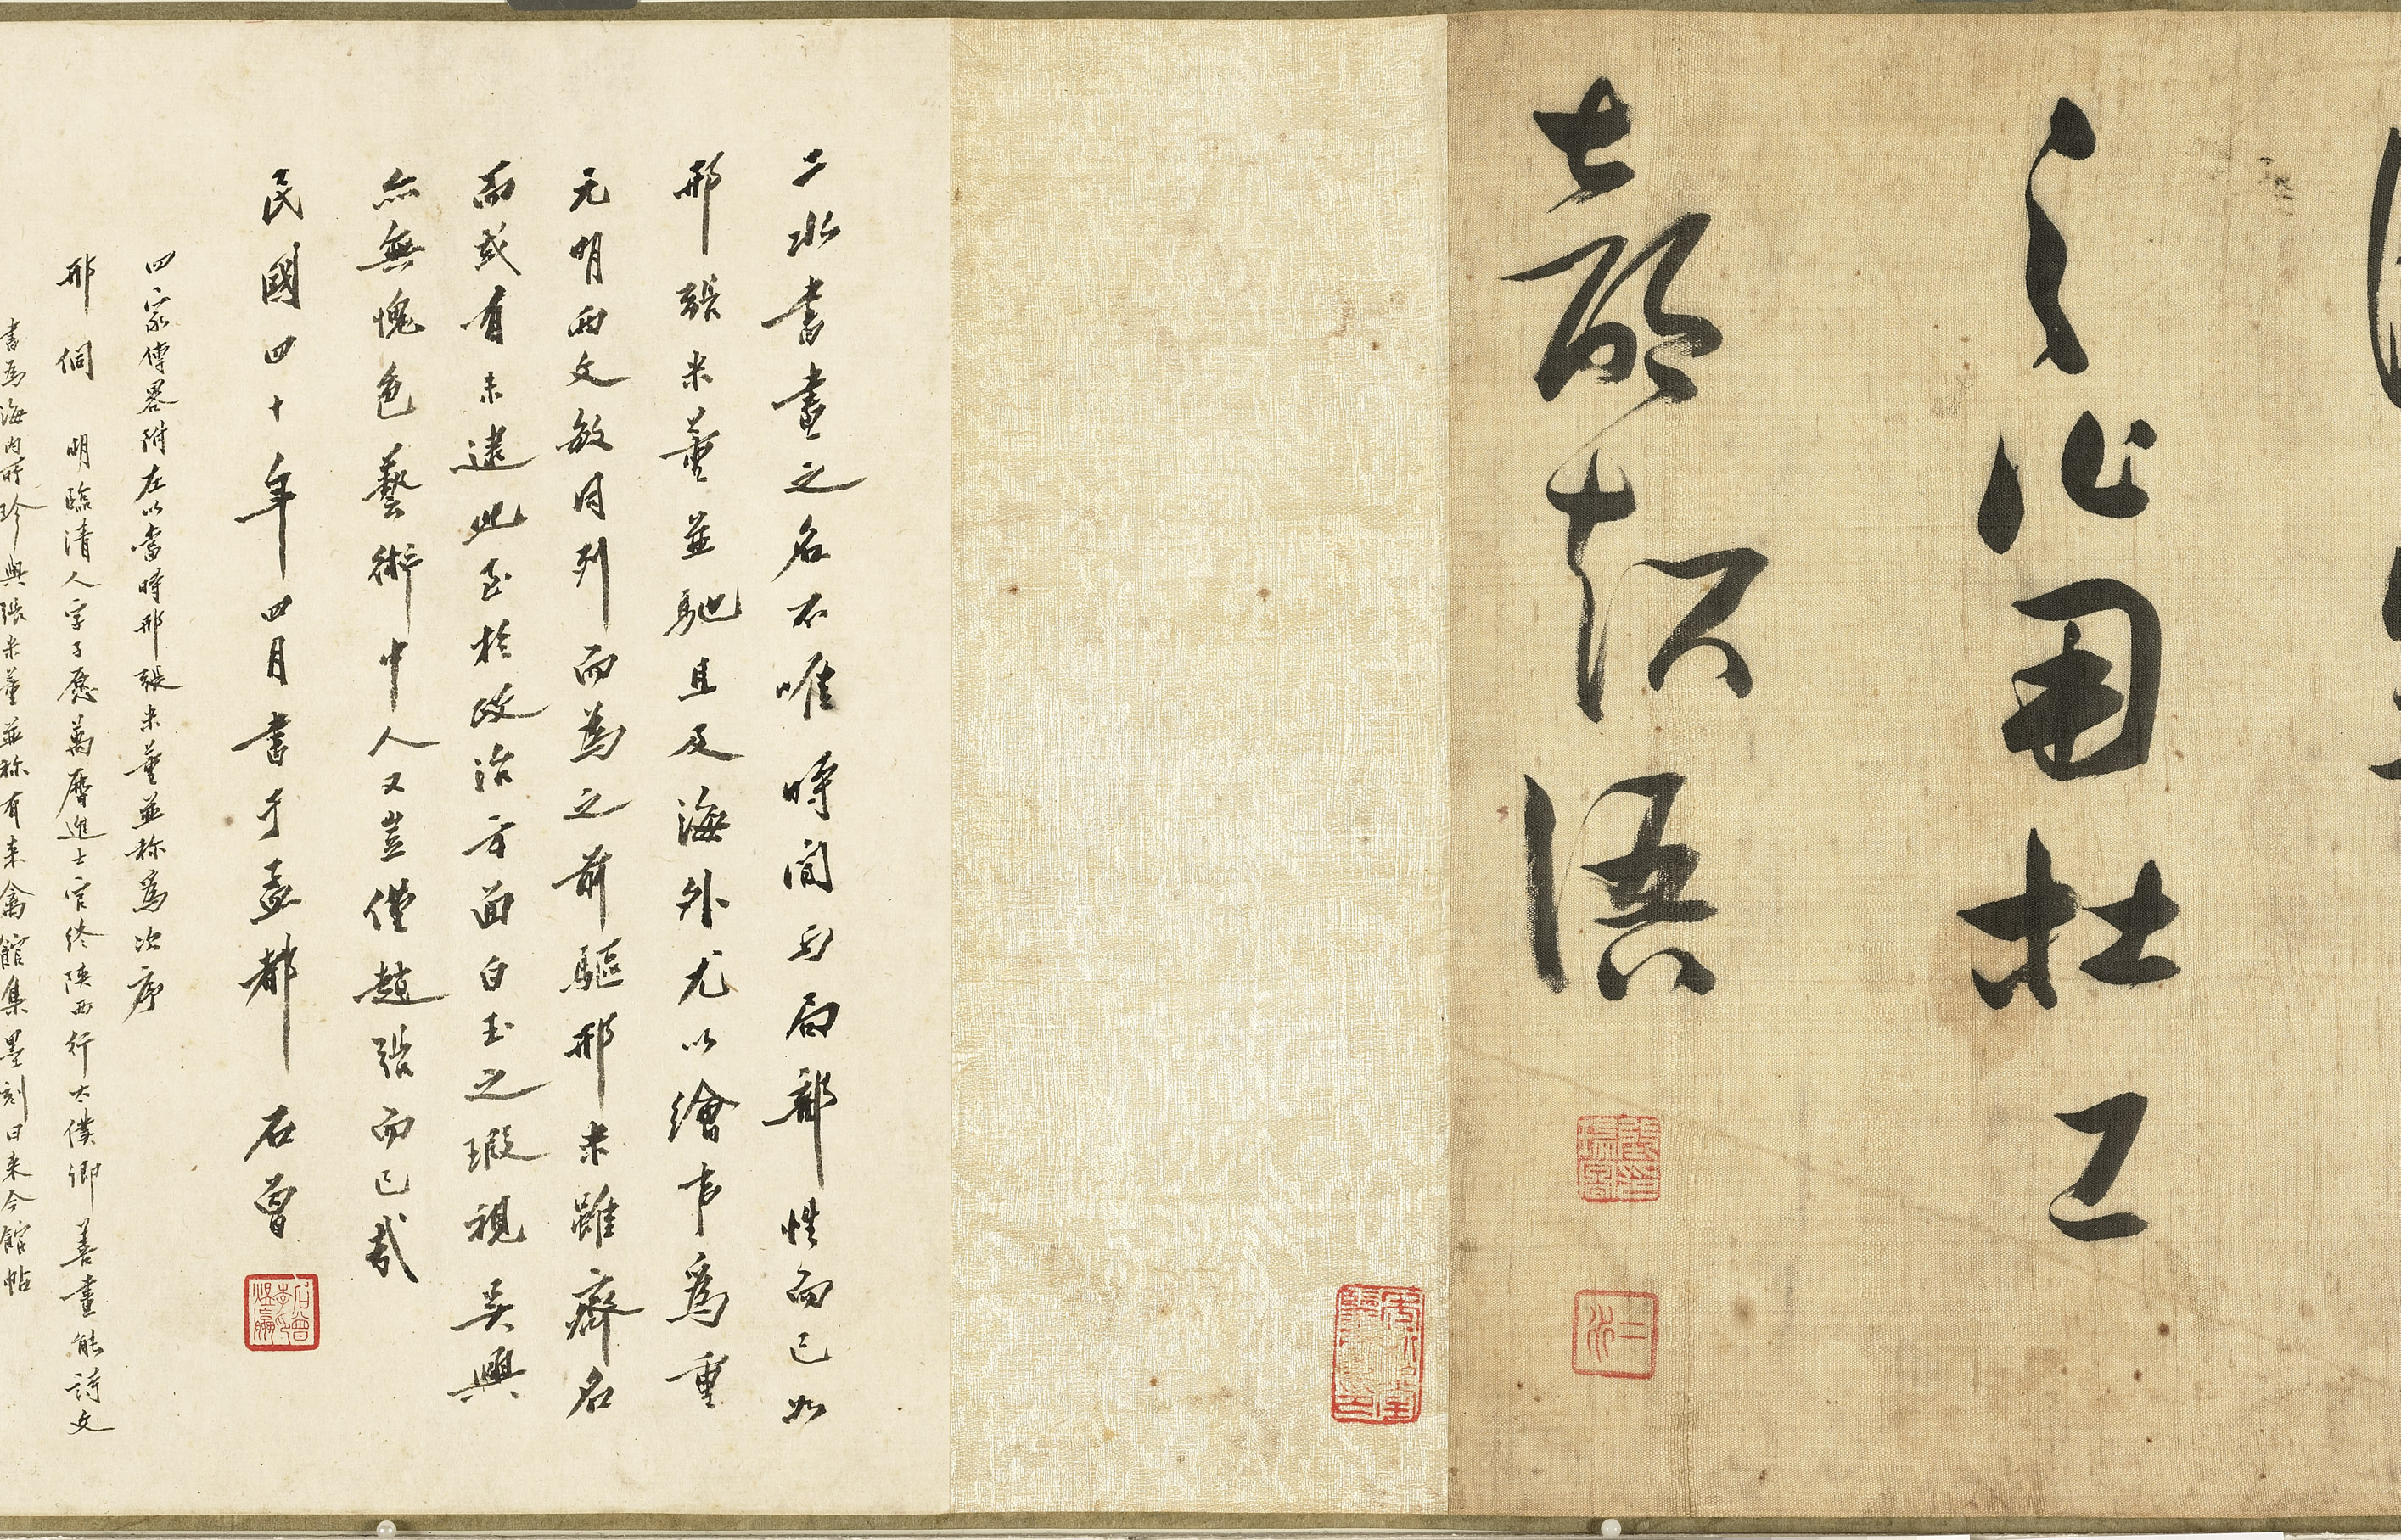 之作用杜工
部起語
二水書畫之名不唯時間與局部性而已如
邢張米董並馳且及海外尤以繪事為重
元明兩文敏同列而為之前驅邢米雖齊名
而或有未逮此至於政治方面白玉之瑕視吳興
亦無愧色藝術中人又豈僅趙張而已哉
民國四十年四月書于孟都 石曾
四家傳畧附左以當時邢張米董並称為次序
邢侗 明臨清人字子愿萬曆進士官終陝西行太僕卿善畫能詩文
書為海內所珍與張米董並称有来禽館集墨刻曰来禽館帖
二水